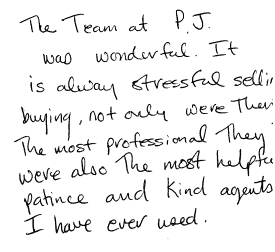 The Team at P.J.
was wonderful. It
is alway stressful
buying, not only were
The most professional They
were also The most
patince and kind agents
I have ever used.